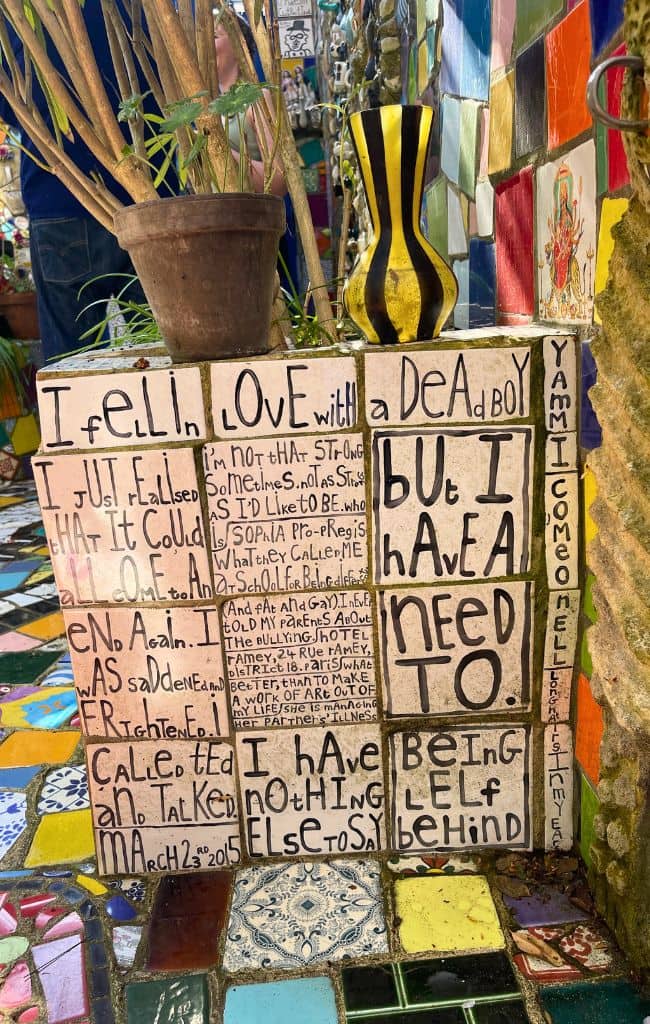 I feLLIn LOVE witH a DeAd BOY
I JUSt reaLiseD
tHAt It CoULd
aLL COME to An
eND AgAin. I
wAS sADDeneD AnD
FRIgHteneD. I
CALLeD teD
anD TALKeD.
MArCH 23RD 2015
I'm nOt tHAt StrOnG
SometImeS. nOt AS Strong
AS I'D LIKe tO BE. wHo
IS/SOPHIA PrO-PRegIS
WHat tHey CALLeD ME
at SCHOOL foR BeInG different
And fAt And GAy) I neVeR
tOLD MY PAReNtS ABOUt
tHe BULLYInG/HOTEL
RAMeY, 24 RUE RAMEY,
DIStRICt 18. PARIS/WHAt
BetteR, tHAn tO MAKe
A WORK Of ARt OUt OF
MY LIfe/SHe IS mAnAGInG
HeR PARtneR'S ILLneSS
I hAVe
nOtHInG
ELSe tO SAY
bUt I
hAvE A
NEED
TO.
BeInG
LELf
beHInD
YAMMI COMe On ELL Long hairs In mY